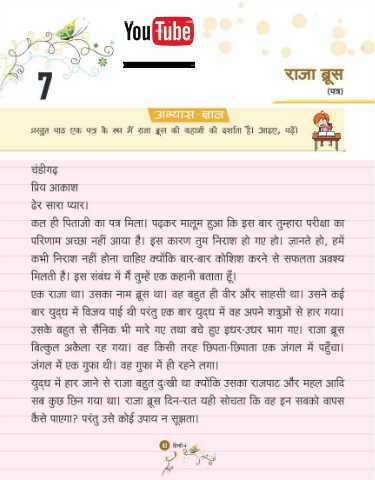 YouTube
7
राजा ब्रूस
(पत्र)
अभ्यास ज्ञान
प्रस्तुत पाठ एक पत्र के रूप में राजा ब्रूस की कहानी को दर्शाता है। आइए, पढ़ें।
चंडीगढ़
प्रिय आकाश
ढेर सारा प्यार।
कल ही पिताजी का पत्र मिला। पढ़कर मालूम हुआ कि इस बार तुम्हारा परीक्षा का
परिणाम अच्छा नहीं आया है। इस कारण तुम निराश हो गए हो। जानते हो, हमें
कभी निराश नहीं होना चाहिए क्योंकि बार-बार कोशिश करने से सफलता अवश्य
मिलती है। इस संबंध में मैं तुम्हें एक कहानी बताता हूँ।
एक राजा था। उसका नाम ब्रूस था। वह बहुत ही वीर और साहसी था। उसने कई
बार युद्ध में विजय पाई थी परंतु एक बार युद्ध में वह अपने शत्रुओं से हार गया।
उसके बहुत से सैनिक भी मारे गए तथा बचे हुए इधर-उधर भाग गए। राजा ब्रूस
बिल्कुल अकेला रह गया। वह किसी तरह छिपता-छिपाता एक जंगल में पहुँचा।
जंगल में एक गुफा थी। वह गुफा में ही रहने लगा।
युद्ध में हार जाने से राजा बहुत दुःखी था क्योंकि उसका राजपाट और महल आदि
सब कुछ छिन गया था। राजा ब्रूस दिन-रात यही सोचता कि वह इन सबको वापस
कैसे पाएगा? परंतु उसे कोई उपाय न सूझता।